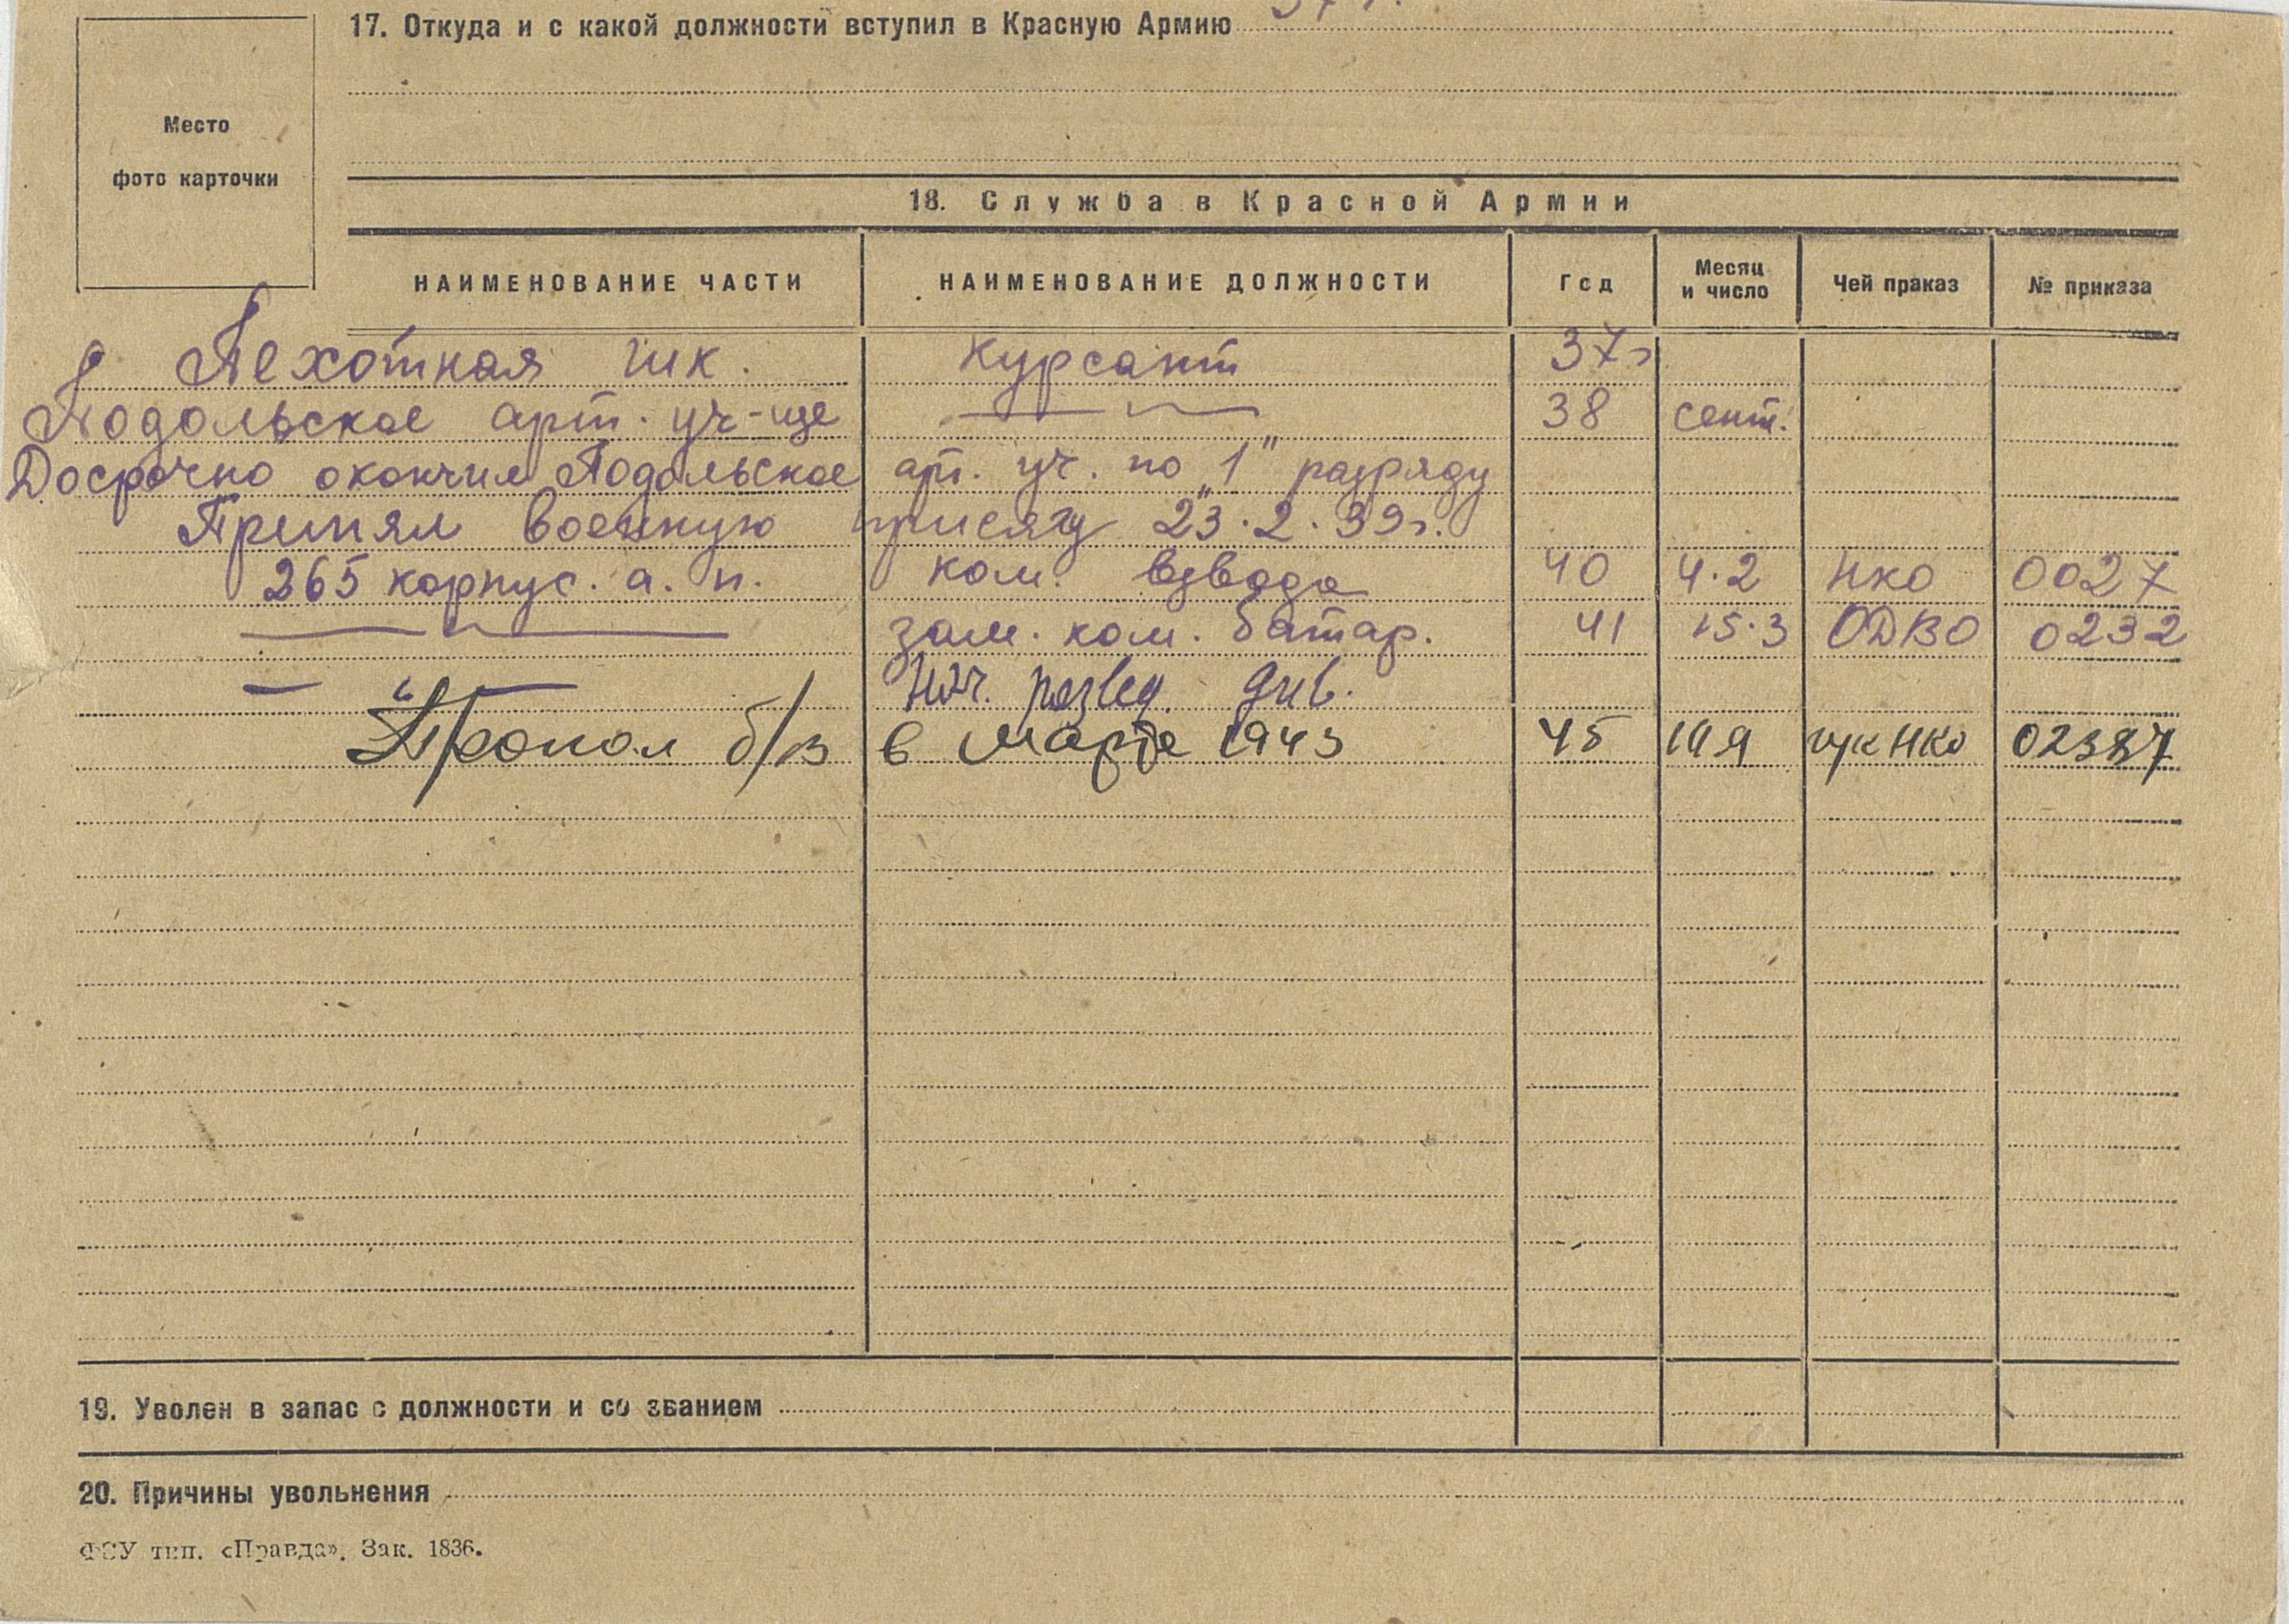 17. Откуда и с какой должности вступил в Красную Армию
Место
фото карточки
18. Служба в Красной Армии
НАИМЕНОВАНИЕ ЧАСТИ НАИМЕНОВАНИЕ ДОЛЖНОСТИ Год Месяц и число Чей праказ № приказа
Пехотная шк. Курсант 37г
Подольское арт. уч-ще —„— 38 сент.
Досрочно окончил Подольское арт. уч. по "1" разряду
Принял военную присягу 23.2.39г.
265 корпус. а. п. ком. взвода 40 4.2 НКО 0027
—„— зам. ком. батар. 41 15.3 ОДВО 0232
—„— Нач. развед. див.
Пропал б/в в марте 1943 45 гук НКО
19. Уволен в запас с должности и со званием
20. Причины увольнения
ФЗУ тип. «Правда». Зак. 1836.